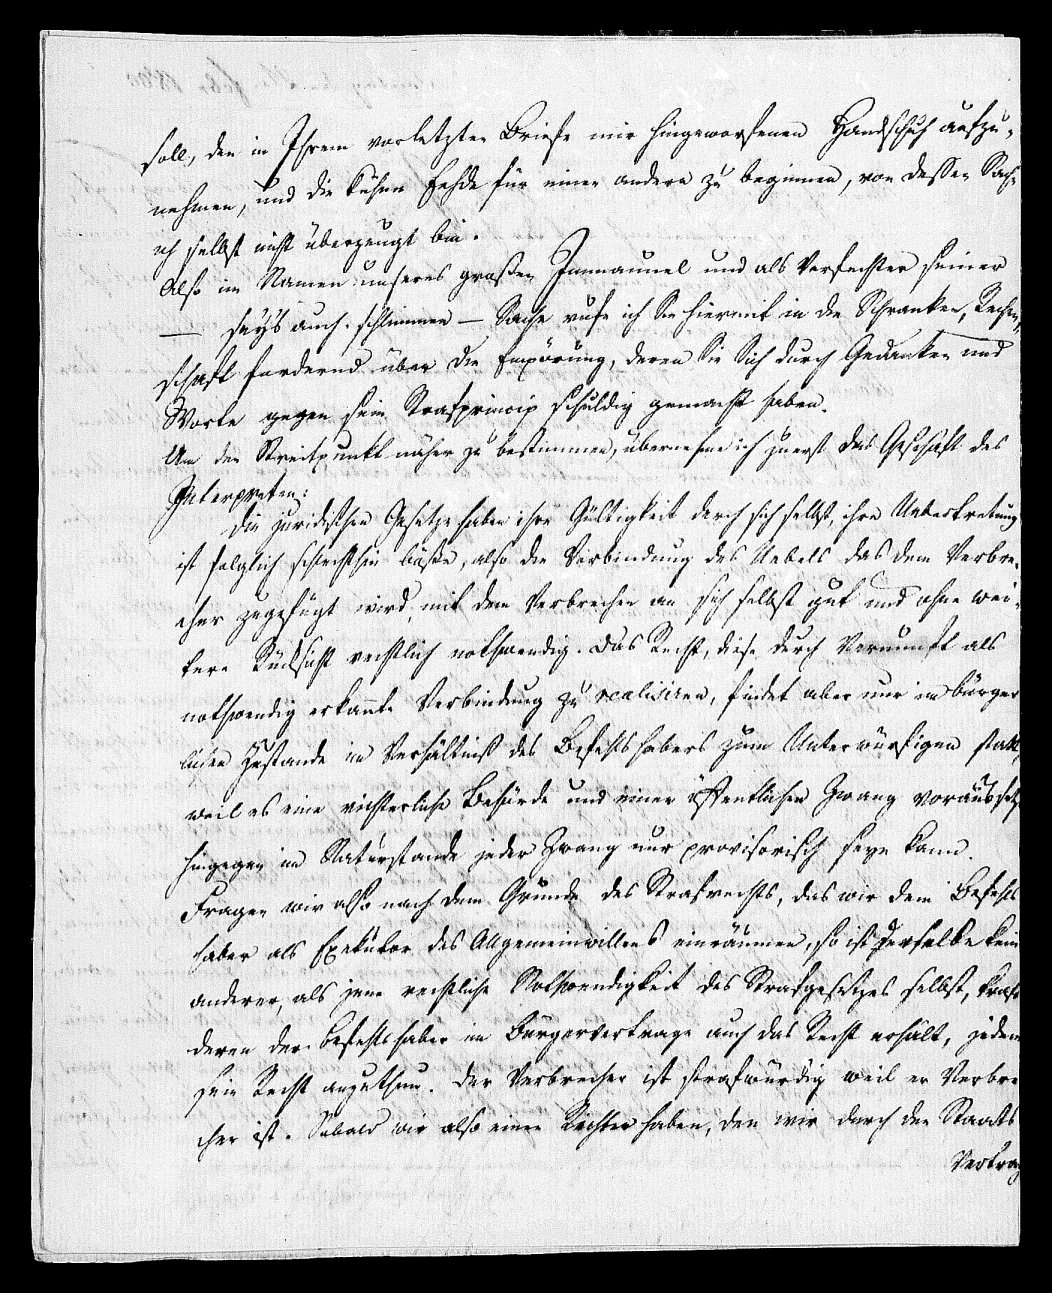 soll, den in Ihrem vorletzten Briefe mir hingeworfenen Handschuh aufzu-
nehmen, und die kühne Fehde für einen andern zu beginnen, von dessen Sache
ich selbst nicht überzeugt bin.
Also im Namen unseres großen Immanuel und als Verfechter seiner
— sey's auch schlimmen — Sache rufe ich Sie hiermit in die Schranken, Rechen-
schaft fordernd über die Empörung, deren Sie Sich durch Gedanken und
Worte gegen sein Strafprincip schuldig gemacht haben.
Um den Streitpunkt näher zu bestimmen, übernehme ich zuerst das Geschäft des
Interpreten:
Die juridischen Gesetze haben ihre Gültigkeit durch sich selbst, ihre Uebertretung
ist folglich schlechthin böse, also die Verbindung des Uebels das dem Verbre-
cher zugefügt wird, mit dem Verbrechen an sich selbst gut und ohne wei-
tere Rücksicht rechtlich nothwendig. Das Recht, diese durch Vernunft als
nothwendig erkannte Verbindung zu realisiren, findet aber nur im bürger
lichen Zustande im Verhältniß des Befehlshabers zum Unterwürfigen statt,
weil es eine richterliche Behörde und einen öffentlichen Zwang voraussetzt,
hingegen im Naturstande jeder Zwang nur provisorisch seyn kann.
Fragen wir also nach dem Grunde des Strafrechts, das wir dem Befehls
haber als Exekutor des Allgemeinwillens einräumen, so ist derselbe kein
anderer, als jene rechtliche Nothwendigkeit des Strafgesetzes selbst, kraft
deren der Befehlshaber im Bürgervertrage auch das Recht erhält, jedem
sein Recht anzuthun. Der Verbrecher ist strafwürdig weil er Verbre
cher ist. Sobald wir also einen Richter haben, den wir durch den Staats
Vertrag